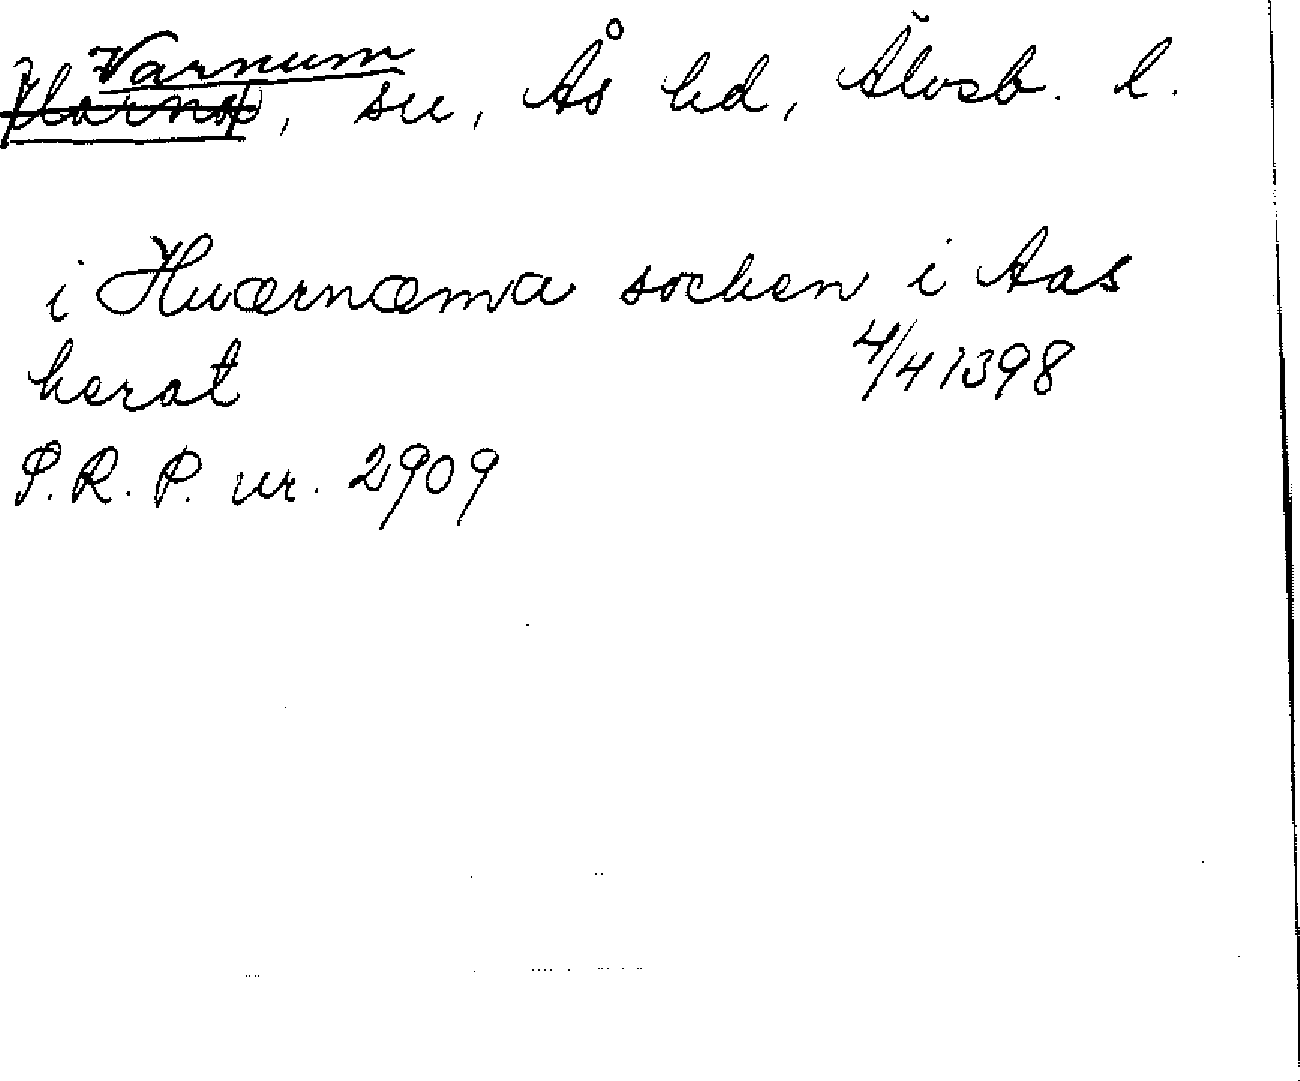 Varnum, sn, Ås hd, Älvsb. l.
i Hwærnæma sochen i Aas
herat 4/4 1398
S.R.P. nr. 2909